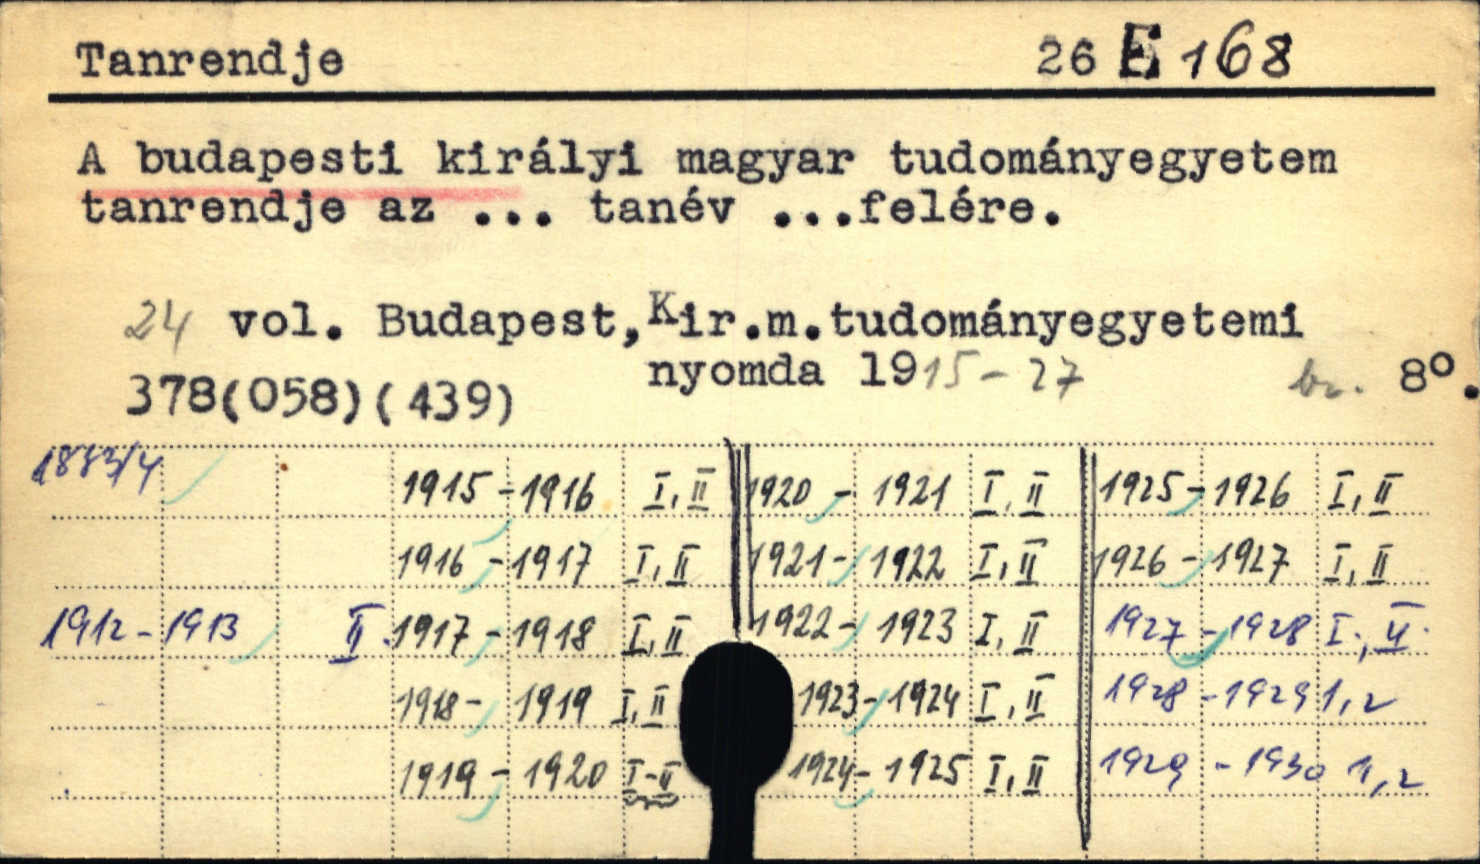 Tanrendje 26 E 168
A budapesti királyi magyar tudományegyetem
tanrendje az ... tanév ...felére.
24 vol. Budapest, Kir.m.tudományegyetemi
nyomda 1915-27 br. 8°.
378(058)(439)
1883/4
1912-1913 II.
1915-1916 I, II
1916-1917 I, II
1917-1918 I, II
1918-1919 I, II
1919-1920 I-II
1920-1921 I, II
1921-1922 I, II
1922-1923 I, II
1923-1924 I, II
1924-1925 I, II
1925-1926 I, II
1926-1927 I, II
1927-1928 I., II.
1928-1929 1, 2
1929-1930 1, 2